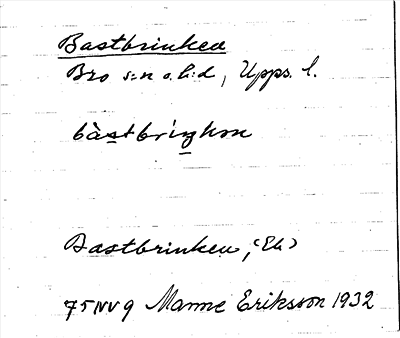 Bastbrinken
Bro s:n o. h:d, Upps. l.
bàstbriŋkɷn
Bastbrinken, (Ek)
75 NV 9 Manne Eriksson 1932